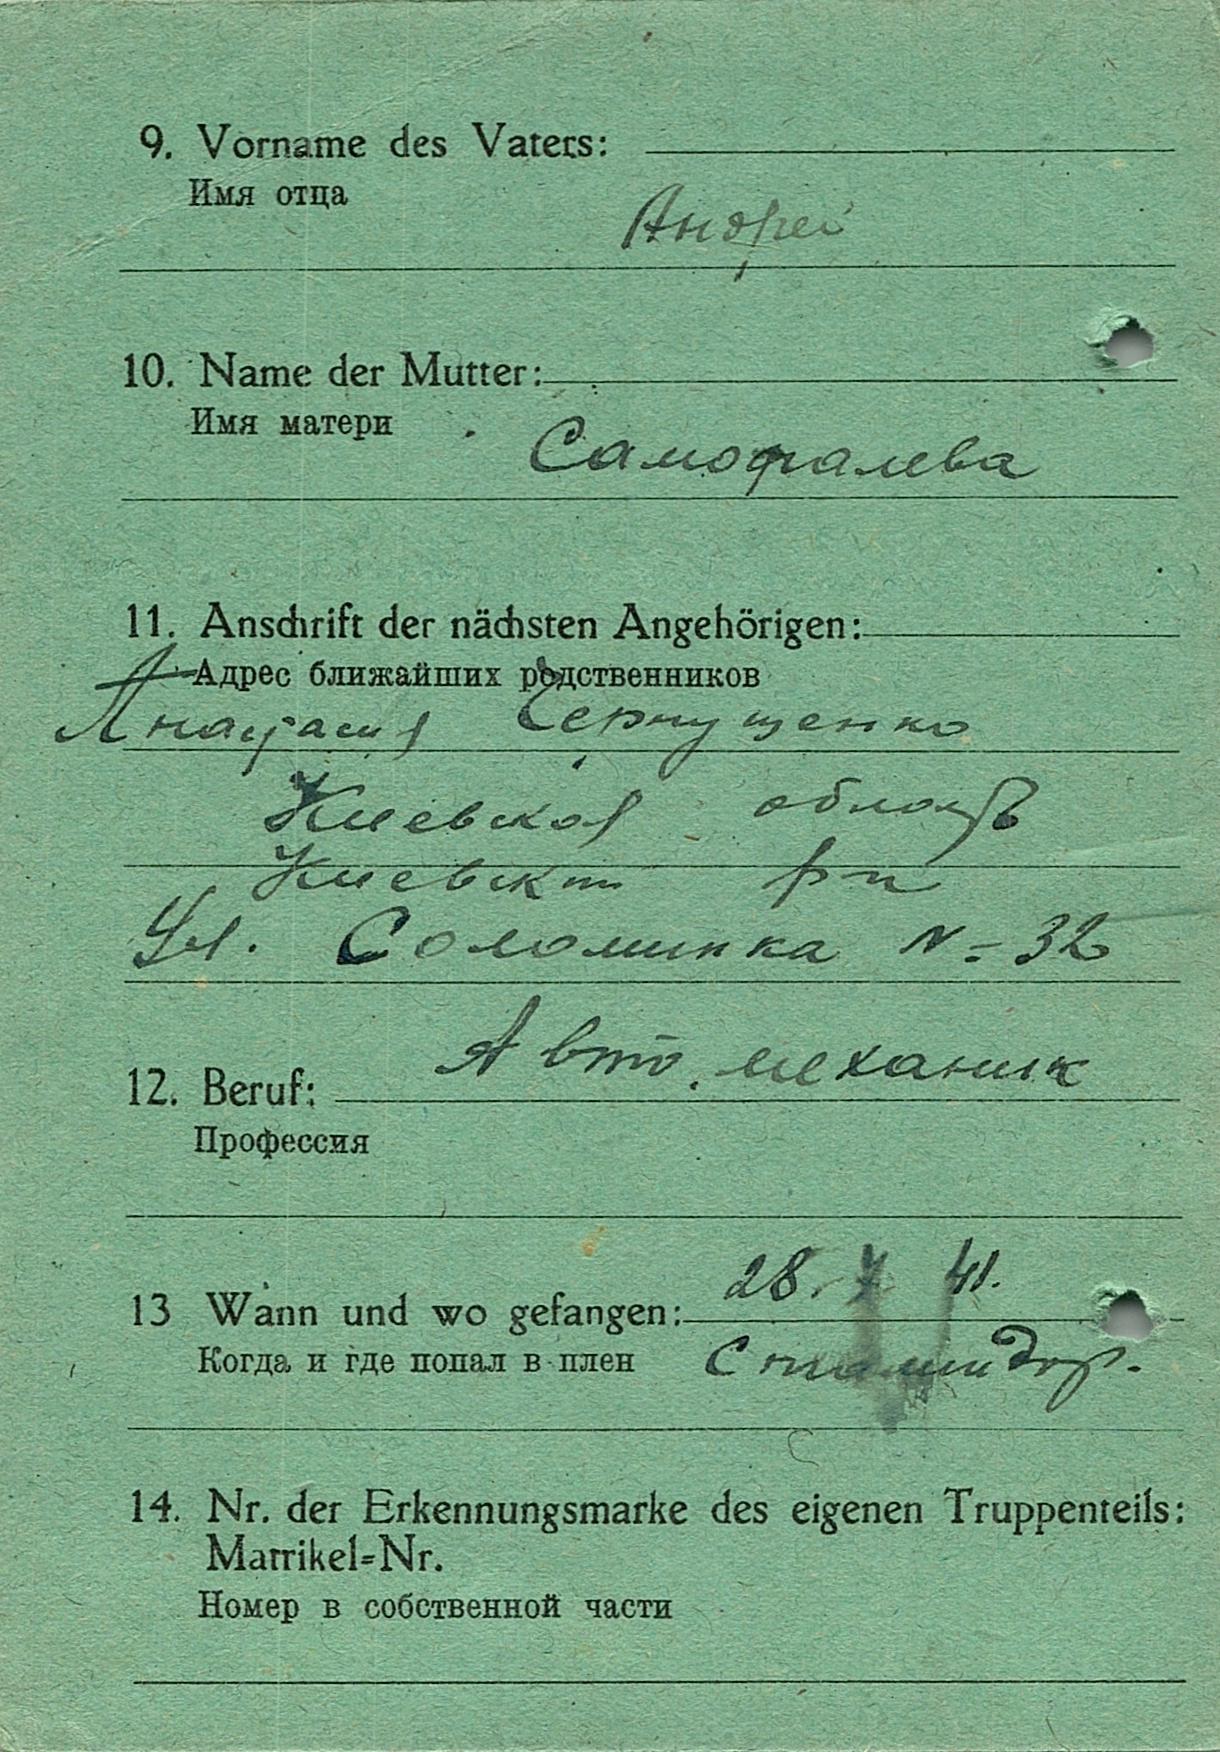 9. Vorname des Vaters:
Имя отца
Андрей
10. Name der Mutter:
Имя матери
Самофалева
11. Anschrift der nächsten Angehörigen:
Адрес ближайших родственников
Анастасия Чернущенко
Киевская область
Киевски р-н
Ул. Соломинка №-32
Авто. механик
12. Beruf:
Профессия
28. 7 41.
13 Wann und wo gefangen:
Когда и где попал в плен
14. Nr. der Erkennungsmarke des eigenen Truppenteils:
Matrikel=Nr.
Номер в собственной части